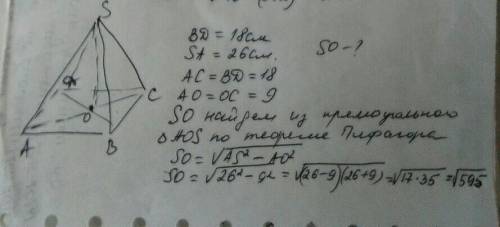 S
BD = 18см
SA = 26см.
SO - ?
AC = BD = 18
AO = OC = 9
SO найдем из прямоугольного
△AOS по теореме Пифагора
SO = √AS² - AO²
SO = √26² - 9² = √(26-9)(26+9) = √17·35 = √595
C
O
A
B